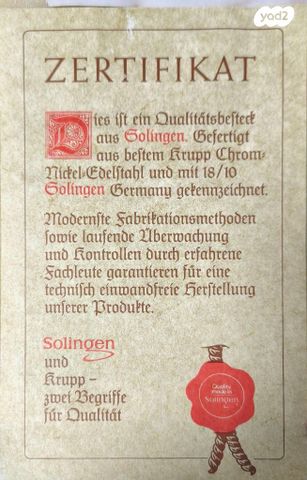 yad2
ZERTIFIKAT
Dies ist ein Qualitätsbesteck
aus Solingen. Gefertigt
aus bestem Krupp Chrom-
Nickel-Edelstahl und mit 18/10
Solingen Germany gekennzeichnet.
Modernste Fabrikationsmethoden
sowie laufende Überwachung
und Kontrollen durch erfahrene
Fachleute garantieren für eine
technisch einwandfreie Herstellung
unserer Produkte.
Solingen
und
Krupp –
zwei Begriffe
für Qualität
Quality
made in
Solingen